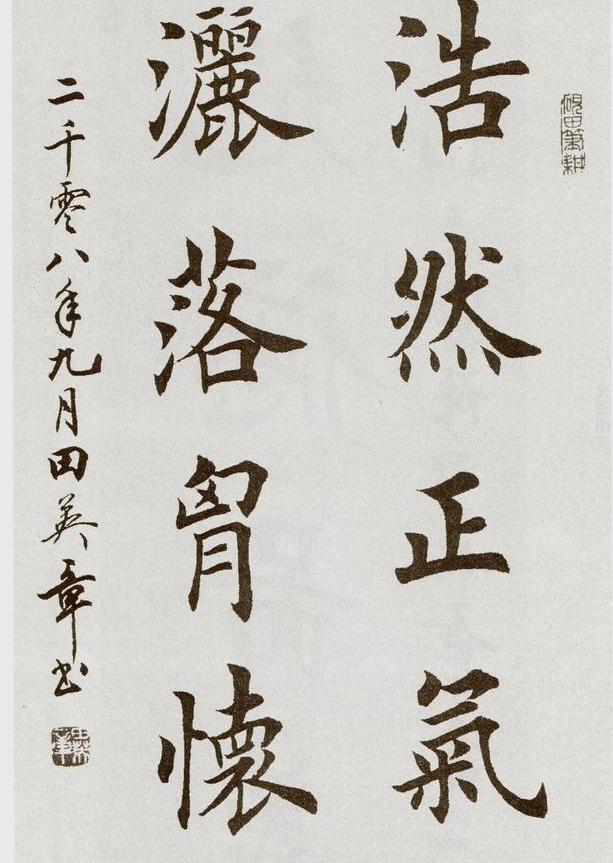 浩然正氣
灑落胷懷
二千零八年九月田英章书
砚田笔耕